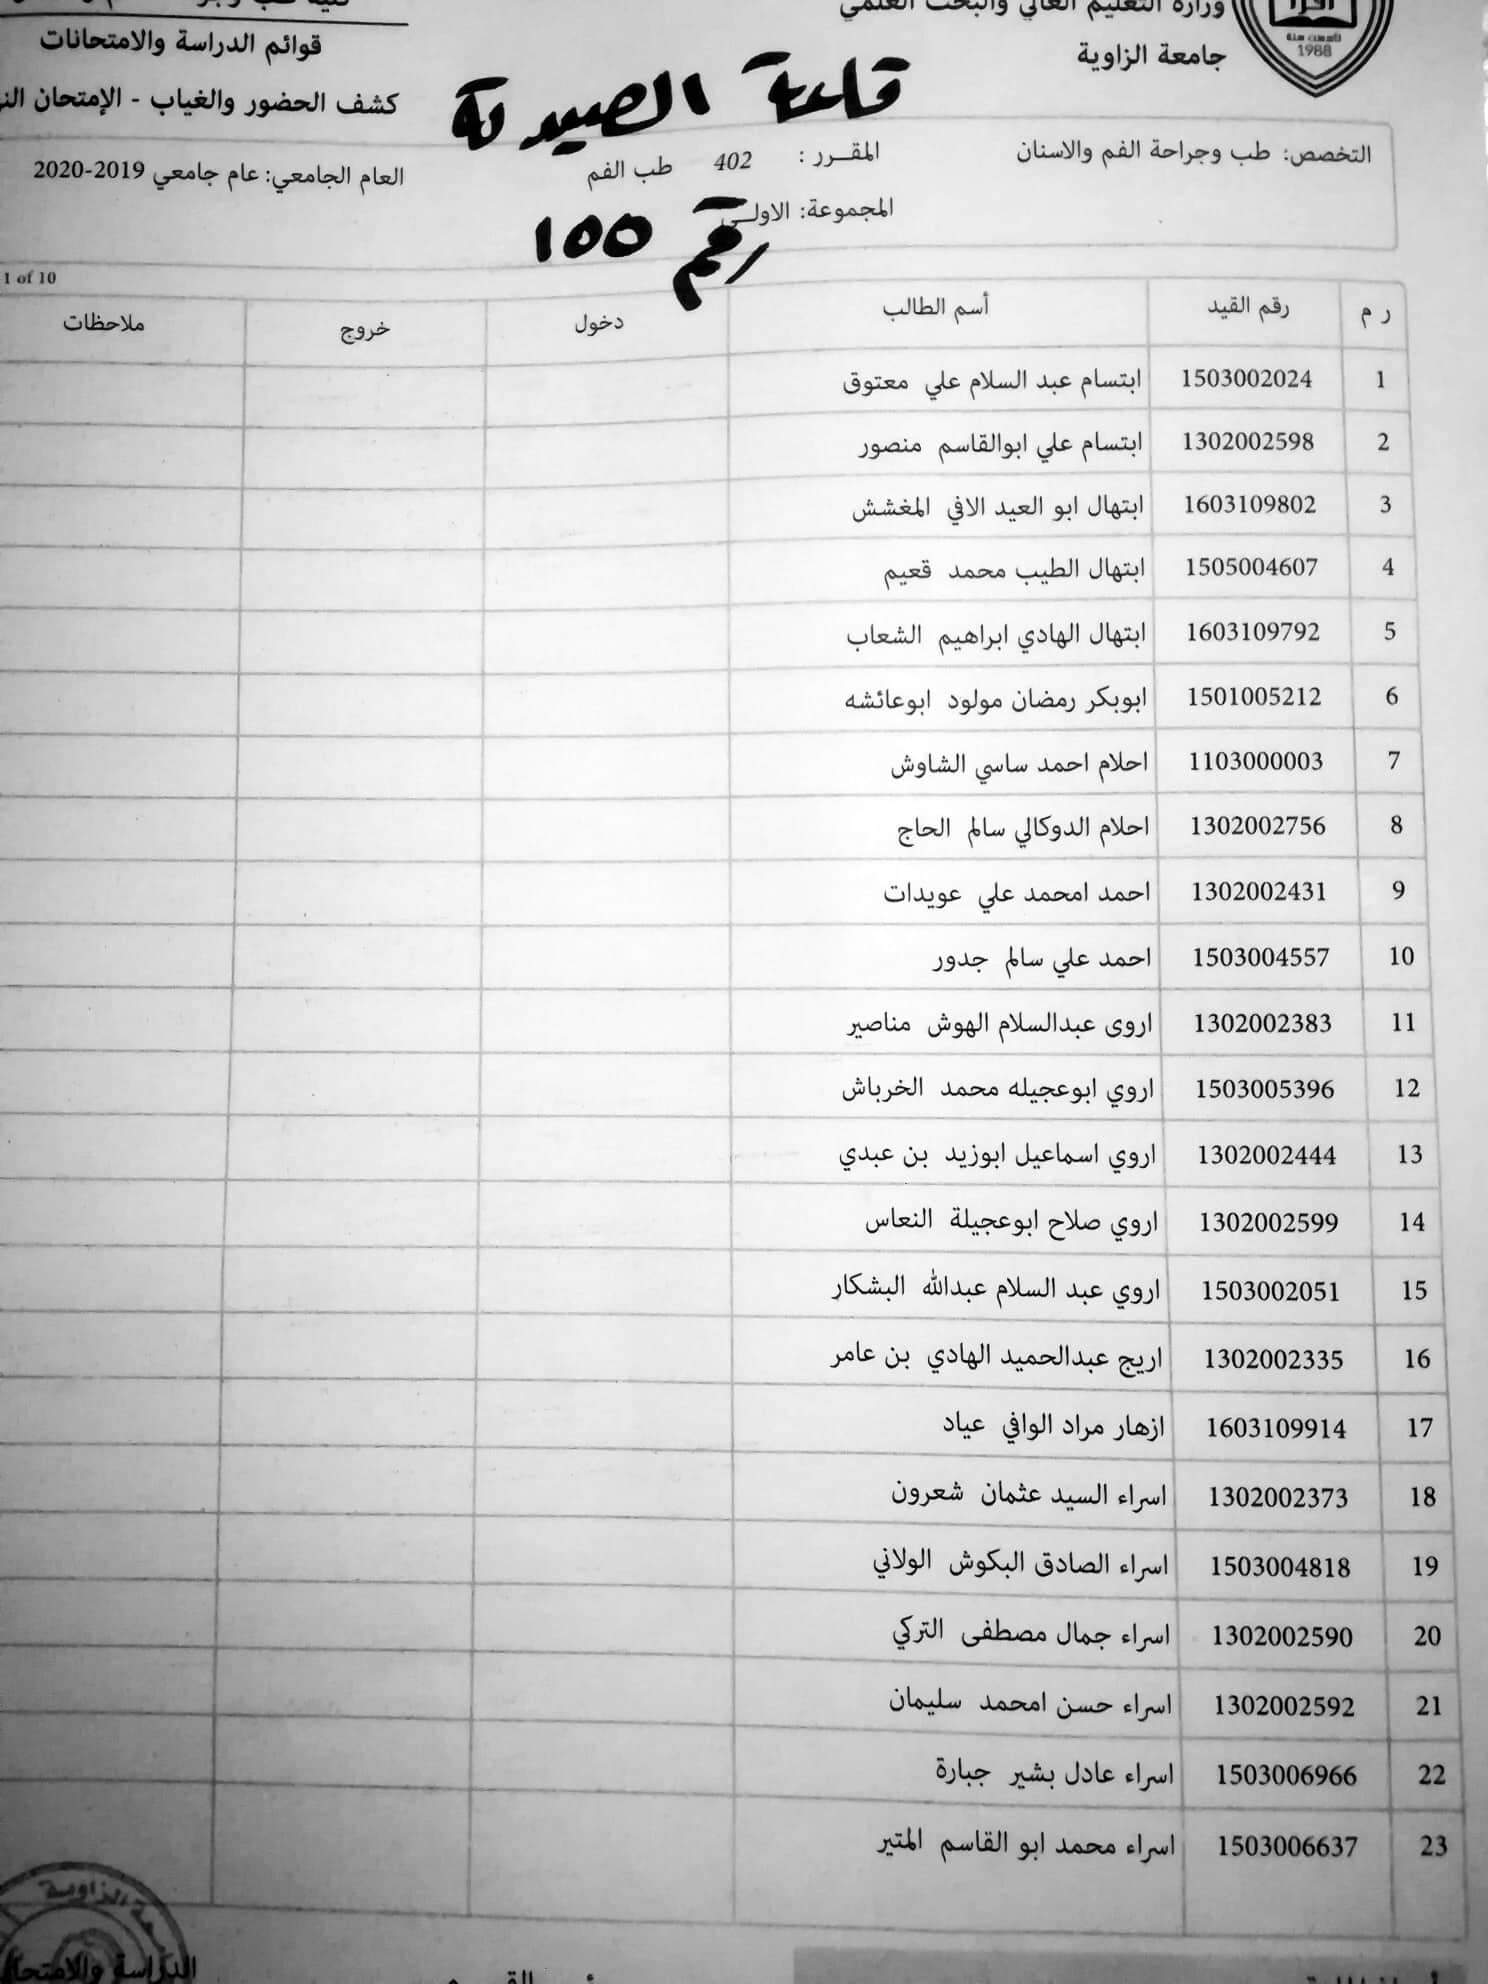 وزارة التعليم العالي والبحث العلمي
جامعة الزاوية
تأسست سنة
1988
قوائم الدراسة والامتحانات
كشف الحضور والغياب - الإمتحان
قاعة الصيدلة
التخصص: طب وجراحة الفم والاسنان
المقــرر : 402 طب الفم
العام الجامعي: عام جامعي 2019-2020
المجموعة: الاولــى
رقم 155
1 of 10
ر م رقم القيد أسم الطالب دخول خروج ملاحظات
1 1503002024 ابتسام عبد السلام علي معتوق
2 1302002598 ابتسام علي ابوالقاسم منصور
3 1603109802 ابتهال ابو العيد الافي المغشش
4 1505004607 ابتهال الطيب محمد قعيم
5 1603109792 ابتهال الهادي ابراهيم الشعاب
6 1501005212 ابوبكر رمضان مولود ابوعائشه
7 1103000003 احلام احمد ساسي الشاوش
8 1302002756 احلام الدوكالي سالم الحاج
9 1302002431 احمد امحمد علي عويدات
10 1503004557 احمد علي سالم جدور
11 1302002383 اروى عبدالسلام الهوش مناصير
12 1503005396 اروي ابوعجيله محمد الخرباش
13 1302002444 اروي اسماعيل ابوزيد بن عبدي
14 1302002599 اروي صلاح ابوعجيلة النعاس
15 1503002051 اروي عبد السلام عبدالله البشكار
16 1302002335 اريج عبدالحميد الهادي بن عامر
17 1603109914 ازهار مراد الوافي عياد
18 1302002373 اسراء السيد عثمان شعرون
19 1503004818 اسراء الصادق البكوش الولاني
20 1302002590 اسراء جمال مصطفى التركي
21 1302002592 اسراء حسن امحمد سليمان
22 1503006966 اسراء عادل بشير جبارة
23 1503006637 اسراء محمد ابو القاسم المتير
الزاوية
الدراسة والامتحا